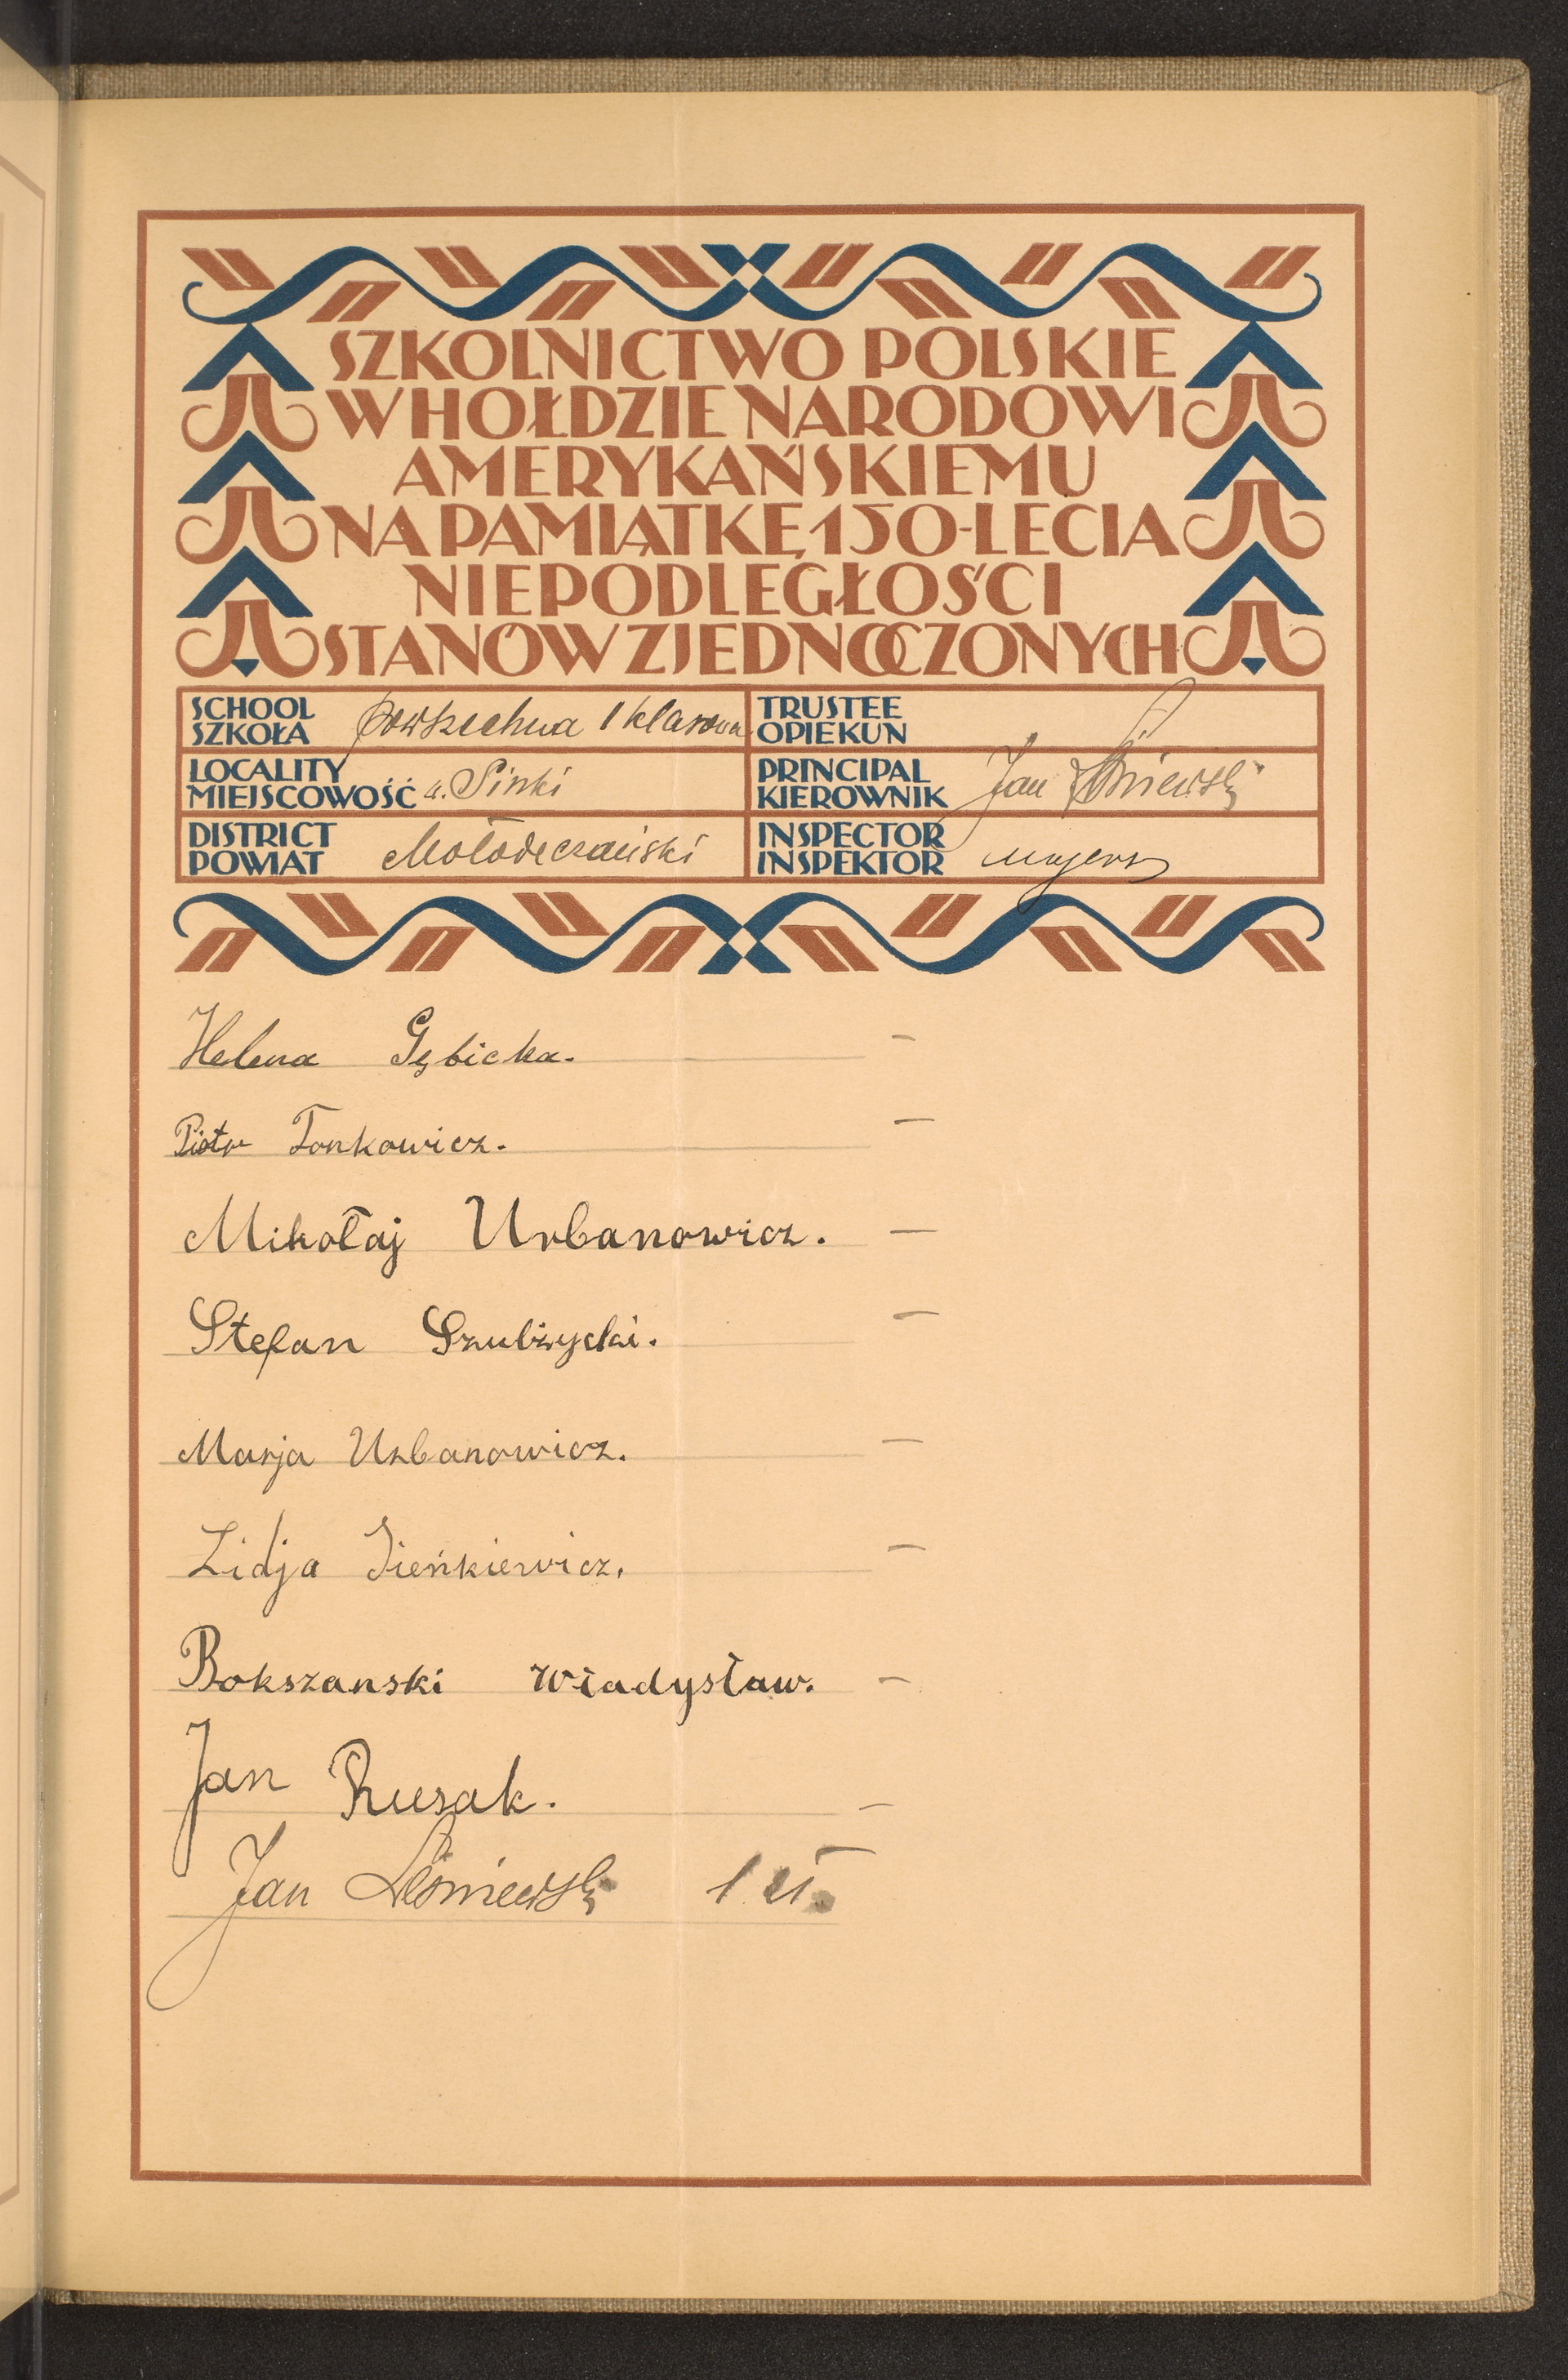 SZKOLNICTWO POLSKIE
W HOŁDZIE NARODOWI
AMERYKAŃSKIEMU
NA PAMIĄTKĘ 150-LECIA
NIEPODLEGŁOŚCI
STANÓW ZJEDNOCZONYCH
SCHOOL
SZKOŁA powszechna 1 klasowa
TRUSTEE
OPIEKUN
LOCALITY
MIEJSCOWOŚĆ Sinki
PRINCIPAL
KIEROWNIK Jan
DISTRICT
POWIAT Mołodeczański
INSPECTOR
INSPEKTOR
Helena Gębicka.
Piotr Tonkowicz.
Mikołaj Urbanowicz.
Stefan
Marja Urbanowicz.
Lidja Sieńkiewicz.
Bokszanski Władysław.
Jan Rusak.
Jan